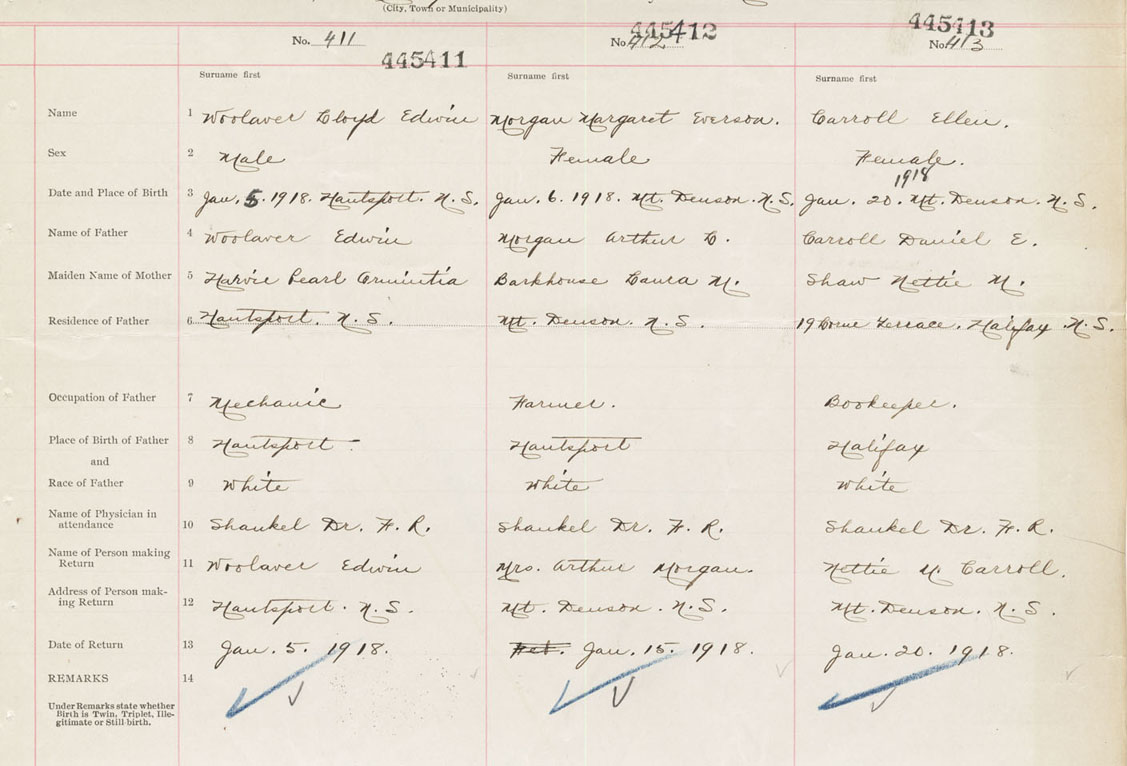 (City, Town or Municipality)
No. 411 No. 412 445412 No. 413 445413
445411
Surname first Surname first Surname first
Name 1 Woolaver Lloyd Edwin Morgan Margaret Everson. Carroll Ellen.
Sex 2 Male Female Female.
1918
Date and Place of Birth 3 Jan. 5. 1918. Hantsport. N.S. Jan. 6. 1918. Mt. Denson. N.S. Jan. 20. Mt. Denson. N.S.
Name of Father 4 Woolaver Edwin Morgan Arthur L. Carroll Daniel E.
Maiden Name of Mother 5 Harvie Pearl Barkhouse Laura M. Shaw Nettie M.
Residence of Father 6 Hantsport. N.S. Mt. Denson. N.S. 19 Lorne Terrace. Halifax. N.S.
Occupation of Father 7 Mechanic Farmer. Bookeeper.
Place of Birth of Father 8 Hantsport - Hantsport Halifax
and
Race of Father 9 White White White
Name of Physician in
attendance 10 Shankel Dr. F. R. Shankel Dr. F. R. Shankel Dr. F. R.
Name of Person making
Return 11 Woolaver Edwin Mrs. Arthur Morgan. Nettie M. Carroll.
Address of Person mak-
ing Return 12 Hantsport. N.S. Mt. Denson. N.S. Mt. Denson. N.S.
Date of Return 13 Jan. 5. 1918. Jan. 15. 1918. Jan. 20. 1918.
REMARKS 14
Under Remarks state whether
Birth is Twin, Triplet, Ille-
gitimate or Still-birth.